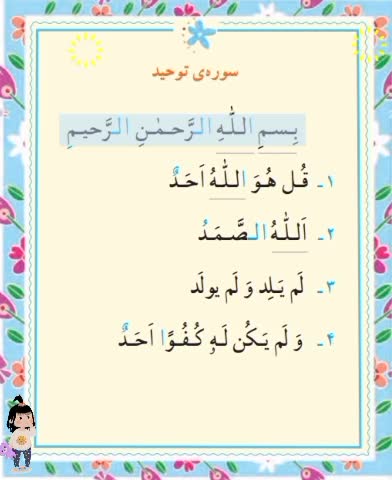 سوره‌ی توحید
بِسمِ اللّٰهِ الرَّحمٰنِ الرَّحیمِ
۱ـ قُل هُوَ اللّٰهُ اَحَدٌ
۲ـ اَللّٰهُ الصَّمَدُ
۳ـ لَم یَلِد وَ لَم یولَد
۴ـ وَ لَم یَکُن لَهٖ کُفُوًا اَحَدٌ